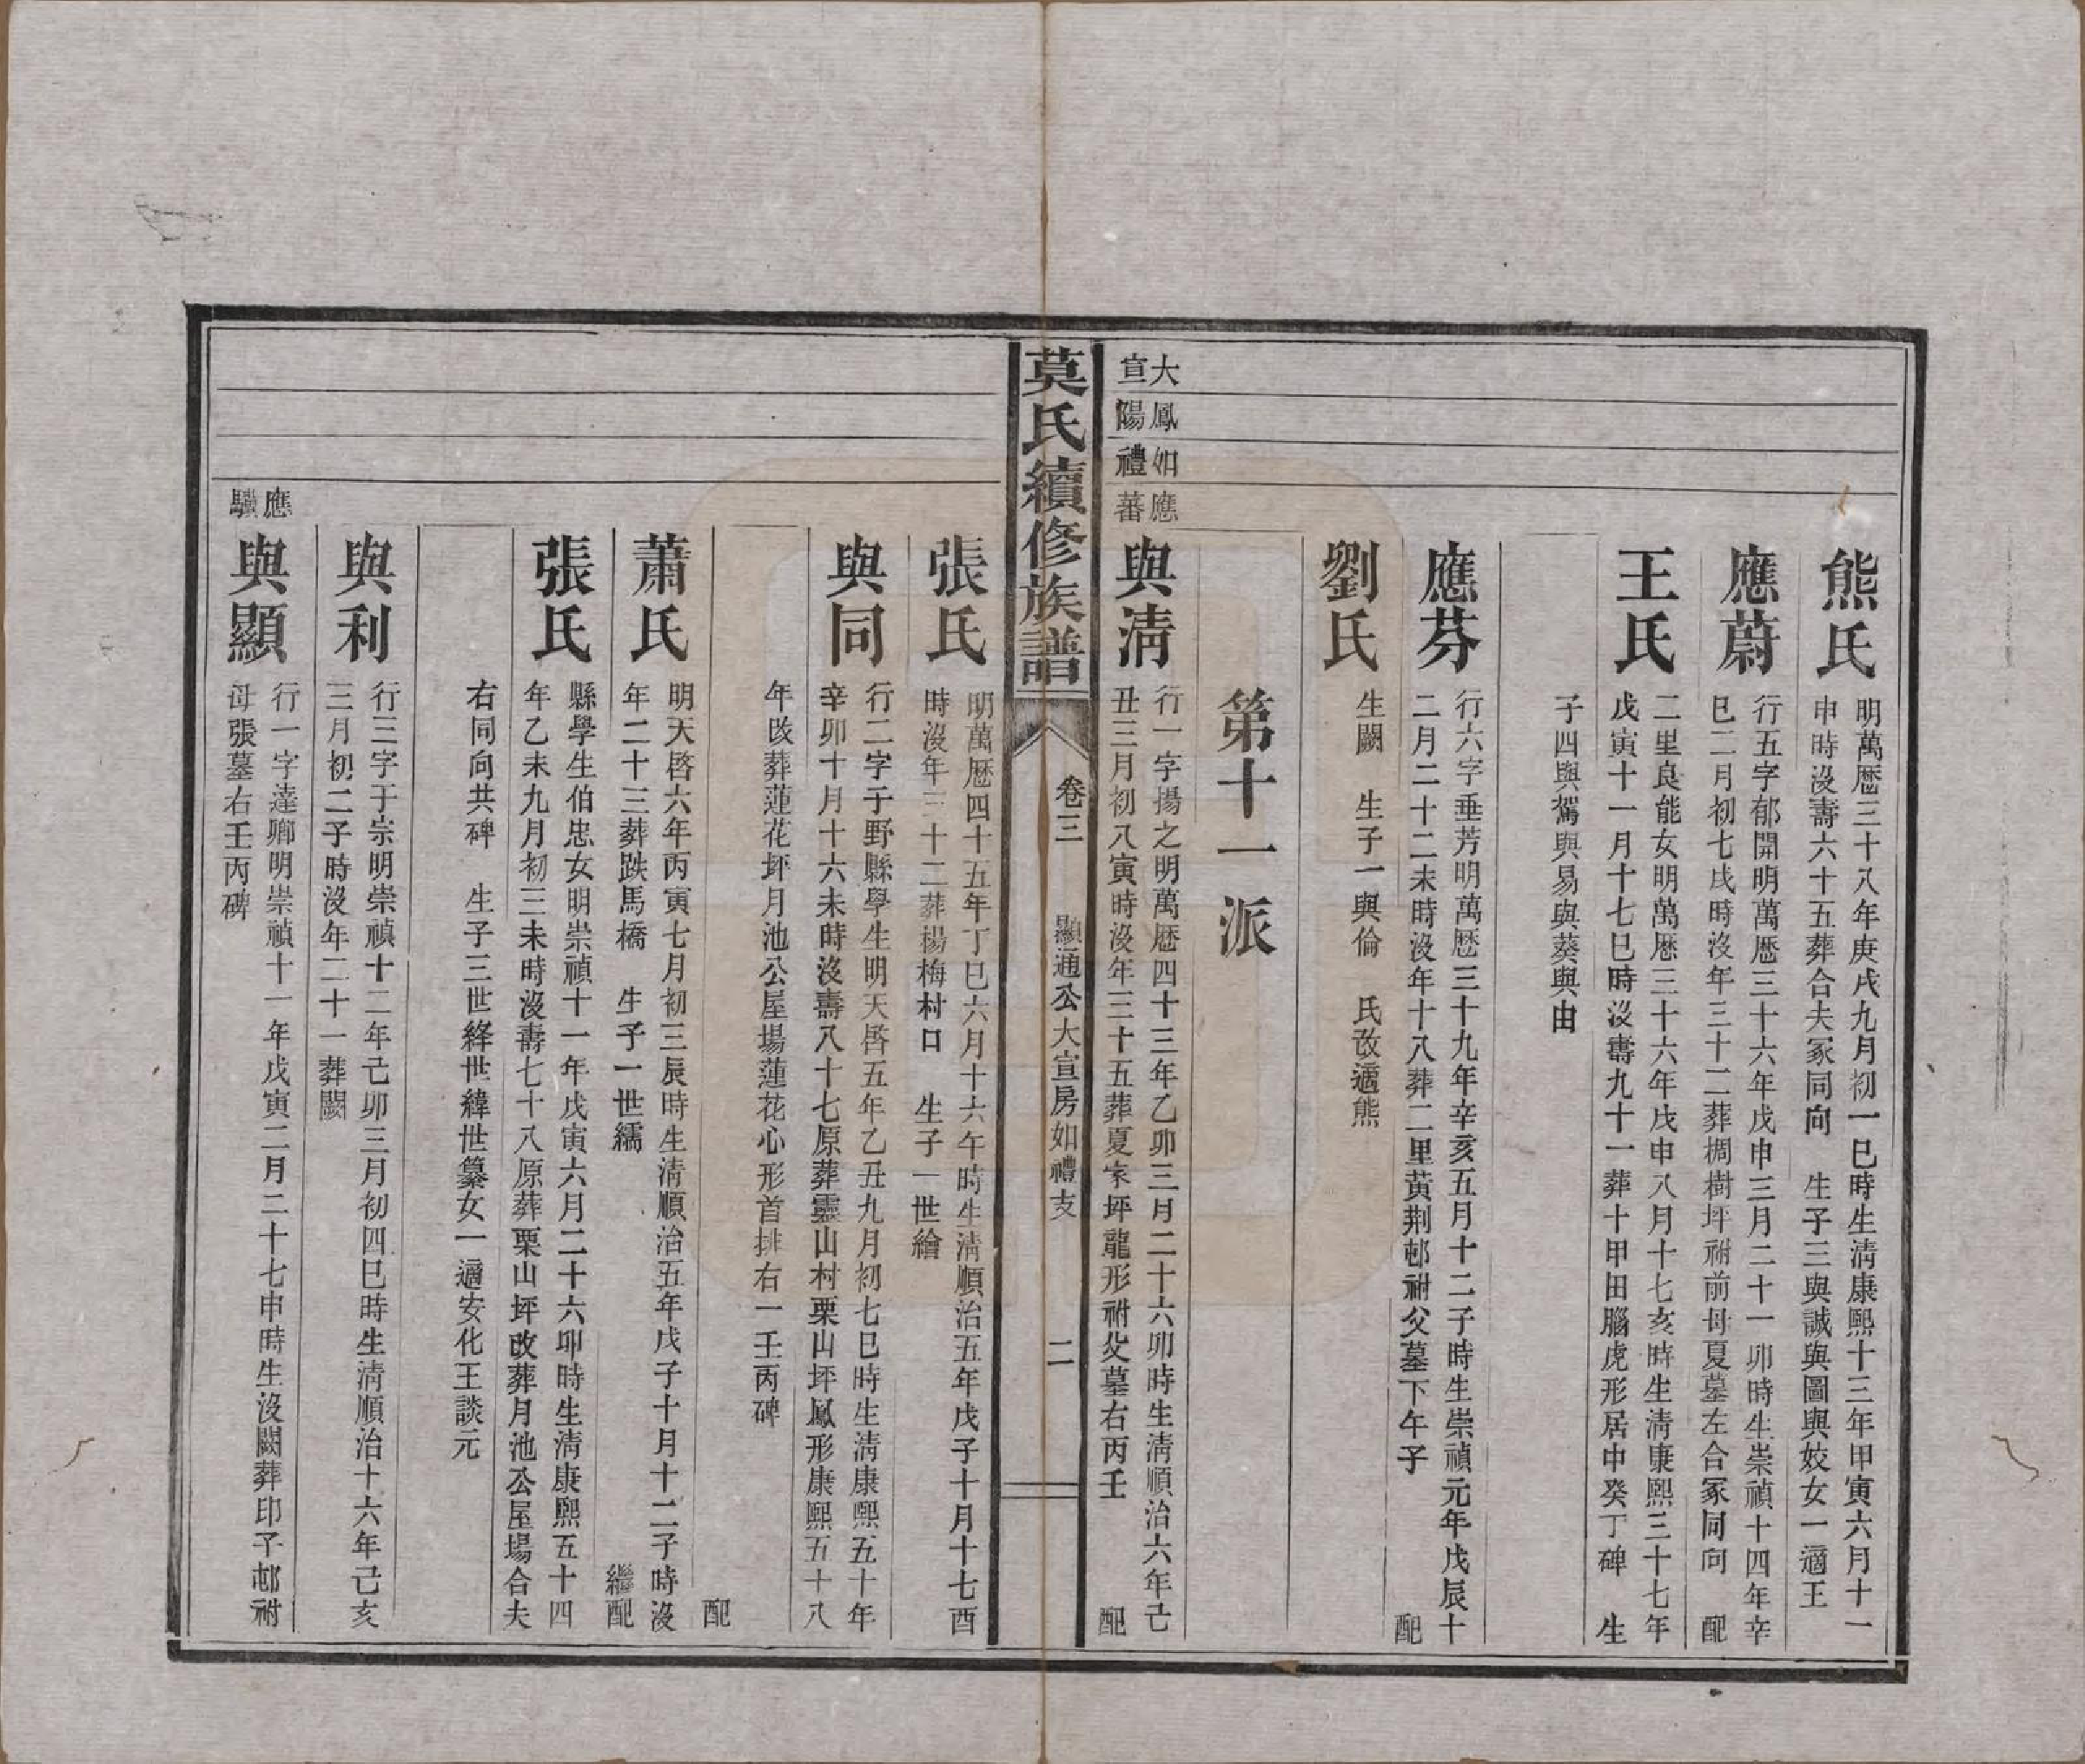 熊氏
明萬厯三十八年庚戌九月初一巳時生清康熙十三年甲寅六月十一
申時沒壽六十五葬合夫冢同向　生子三與誠與圖與姣女一適王
應蔚
行五字郁開明萬厯三十六年戊申三月二十一卯時生崇禎十四年辛
巳二月初七戌時沒年三十二葬椆樹坪祔前母夏墓左合冢同向　配
王氏
二里良能女明萬厯三十六年戊申八月十七亥時生清康熙三十七年
戊寅十一月十七巳時沒壽九十一葬十甲田腦虎形居中癸丁碑　生
子四與駕與易與葵與由
應芬
行六字垂芳明萬厯三十九年辛亥五月十二子時生崇禎元年戊辰十
二月二十二未時沒年十八葬二里黃荆邨祔父墓下午子　配
劉氏
生闕　生子一與倫　氏改適熊
第十一派
大鳳如應
宣陽禮蕃
與清
行一字揚之明萬厯四十三年乙卯三月二十六卯時生清順治六年己
丑三月初八寅時沒年三十五葬夏家坪龍形祔父墓右丙壬　配
莫氏續修族譜
卷三
顯通公大宣房如禮支
二
張氏
明萬厯四十五年丁巳六月十六午時生清順治五年戊子十月十七酉
時沒年三十二葬楊梅村口　生子一世繪
與同
行二字于野縣學生明天啓五年乙丑九月初七巳時生清康熙五十年
辛卯十月十六未時沒壽八十七原葬靈山村栗山坪鳳形康熙五十八
年改葬蓮花坪月池公屋場蓮花心形首排右一壬丙碑　配
蕭氏
明天啓六年丙寅七月初三辰時生清順治五年戊子十月十二子時沒
年二十三葬跌馬橋　生子一世繻　繼配
張氏
縣學生伯忠女明崇禎十一年戊寅六月二十六卯時生清康熙五十四
年乙未九月初三未時沒壽七十八原葬栗山坪改葬月池公屋場合夫
右同向共碑　生子三世絳世緯世纂女一適安化王談元
與利
行三字于宗明崇禎十二年己卯三月初四巳時生清順治十六年己亥
三月初二子時沒年二十一葬闕
應
驥
與顯
行一字達卿明崇禎十一年戊寅二月二十七申時生沒闕葬印子邨祔
母張墓右壬丙碑